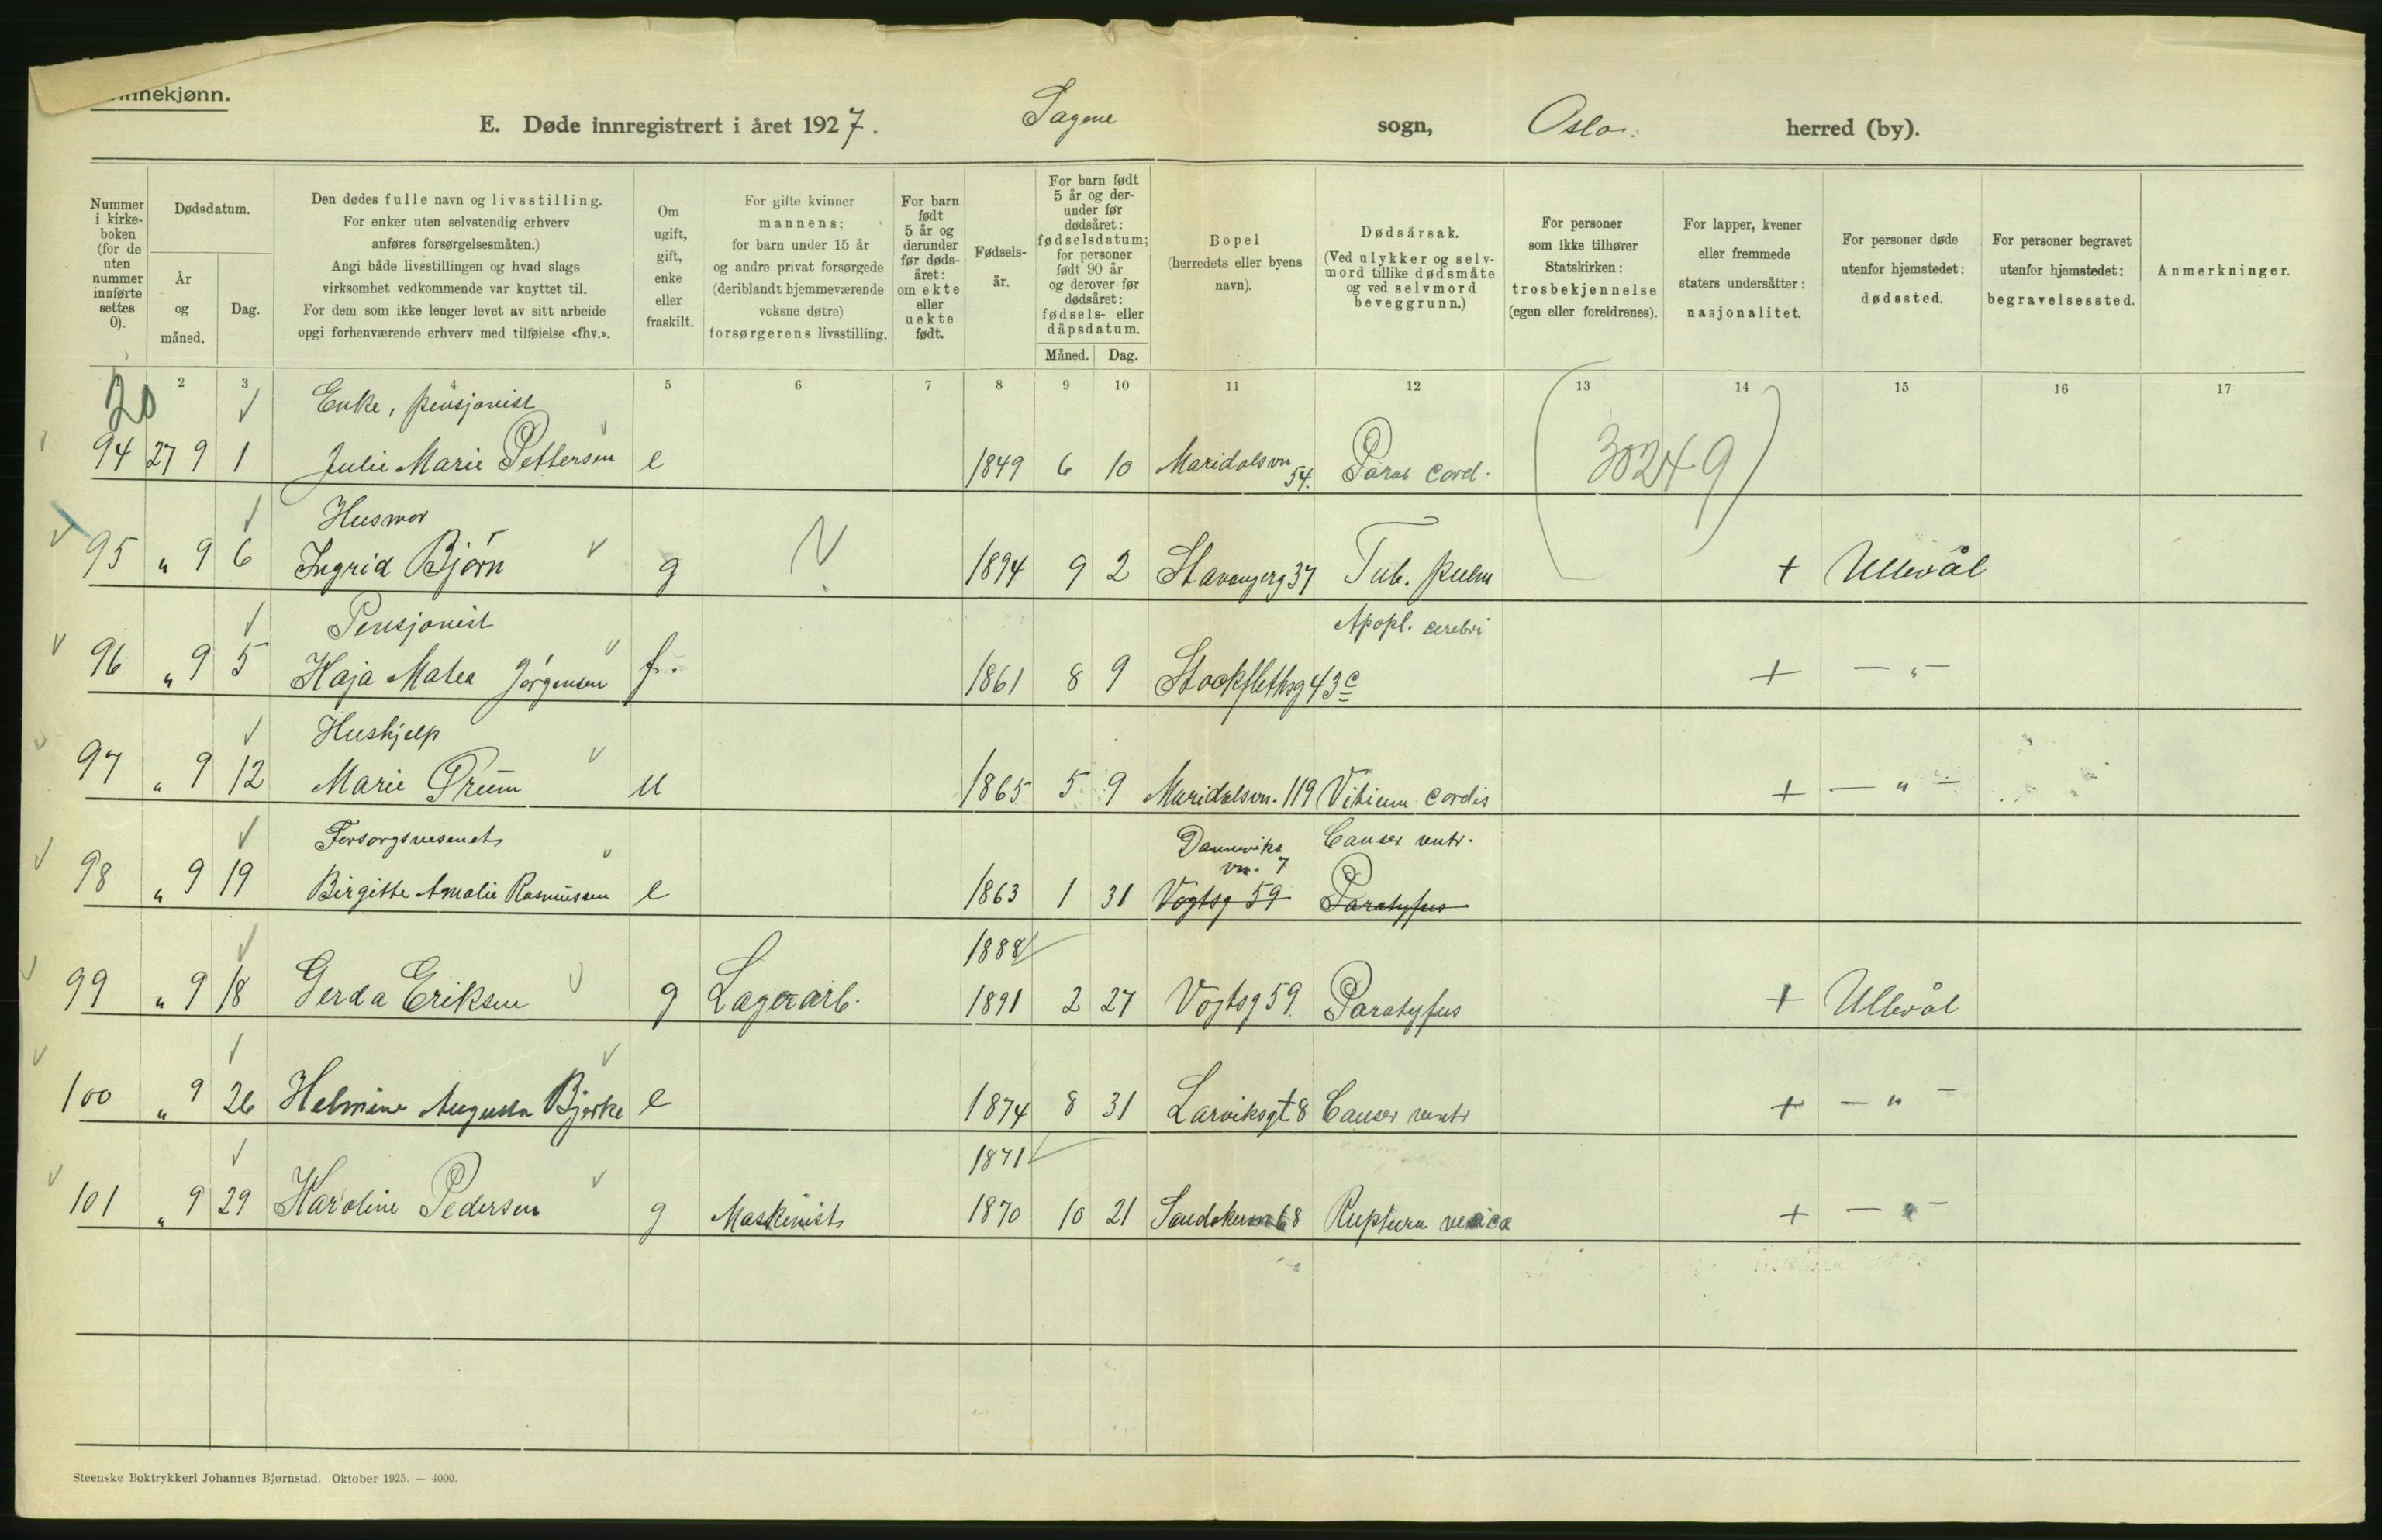 nnekjønn.
E. Døde innregistrert i året 1927. Sagene sogn, Oslo. herred (by).
Nummer i kirke- boken (for de uten nummer innførte settes 0).
Dødsdatum.
År og måned.
Dag.
Den dødes fulle navn og livsstilling.
For enker uten selvstendig erhverv
anføres forsørgelsesmåten.)
Angi både livsstillingen og hvad slags
virksomhet vedkommende var knyttet til.
For dem som ikke lenger levet av sitt arbeide
opgi forhenværende erhverv med tilføielse «fhv.».
Om ugift, gift, enke eller fraskilt.
For gifte kvinner
mannens;
for barn under 15 år
og andre privat forsørgede
(deriblandt hjemmeværende
voksne døtre)
forsørgerens livsstilling.
For barn født 5 år og derunder før døds- året: om ekte eller uekte født.
Fødsels- år.
For barn født 5 år og der- under før dødsåret: fødselsdatum; for personer født 90 år og derover før dødsåret: fødsels- eller dåpsdatum.
Måned. Dag.
Bopel
(herredets eller byens
navn).
Dødsårsak.
(Ved ulykker og selv-
mord tillike dødsmåte
og ved selvmord
beveggrunn.)
For personer
som ikke tilhører
Statskirken:
trosbekjennelse
(egen eller foreldrenes).
For lapper, kvener
eller fremmede
staters undersåtter:
nasjonalitet.
For personer døde
utenfor hjemstedet:
dødssted.
For personer begravet
utenfor hjemstedet:
begravelsessted.
Anmerkninger.
2 3 4 5 6 7 8 9 10 11 12 13 14 15 16 17
20
Enke, pensjonist
94 27 9 1 Julie Marie Pettersen e 1849 6 10 Maridalsvn 54. Paral cord. 30249
Husmor
95 " 9 6 Ingrid Bjørn g 1894 9 2 Stavangerg 37 Tub. pulm + Ullevål
Pensjonist Apopl. cerebri
96 " 9 5 Kaja Matea Jørgensen f. 1861 8 9 Stockflethsg 43c + — " —
Hushjelp
97 " 9 12 Marie u 1865 5 9 Maridalsvn. 119 Vitium cordis + — " —
Forsorgsvesenet Danneviks vn. 7 Cancer ventr.
98 " 9 19 Birgitte Amalie Rasmussen e 1863 1 31 Vogtsg 59 Paratyfus
1888
99 " 9 18 Gerda Eriksen g Lagerarb. 1891 2 27 Vogtsg 59. Paratyfus + Ullevål
100 " 9 26 Helmine Augusta Bjerke e 1874 8 31 Larviksgt. 8 Cancer ventr + — " —
1871
101 " 9 29 Karoline Pedersen g Maskinist 1870 10 21 68 Ruptura vesica + — " —
Steenske Boktrykkeri Johannes Bjørnstad. Oktober 1925. — 4000.